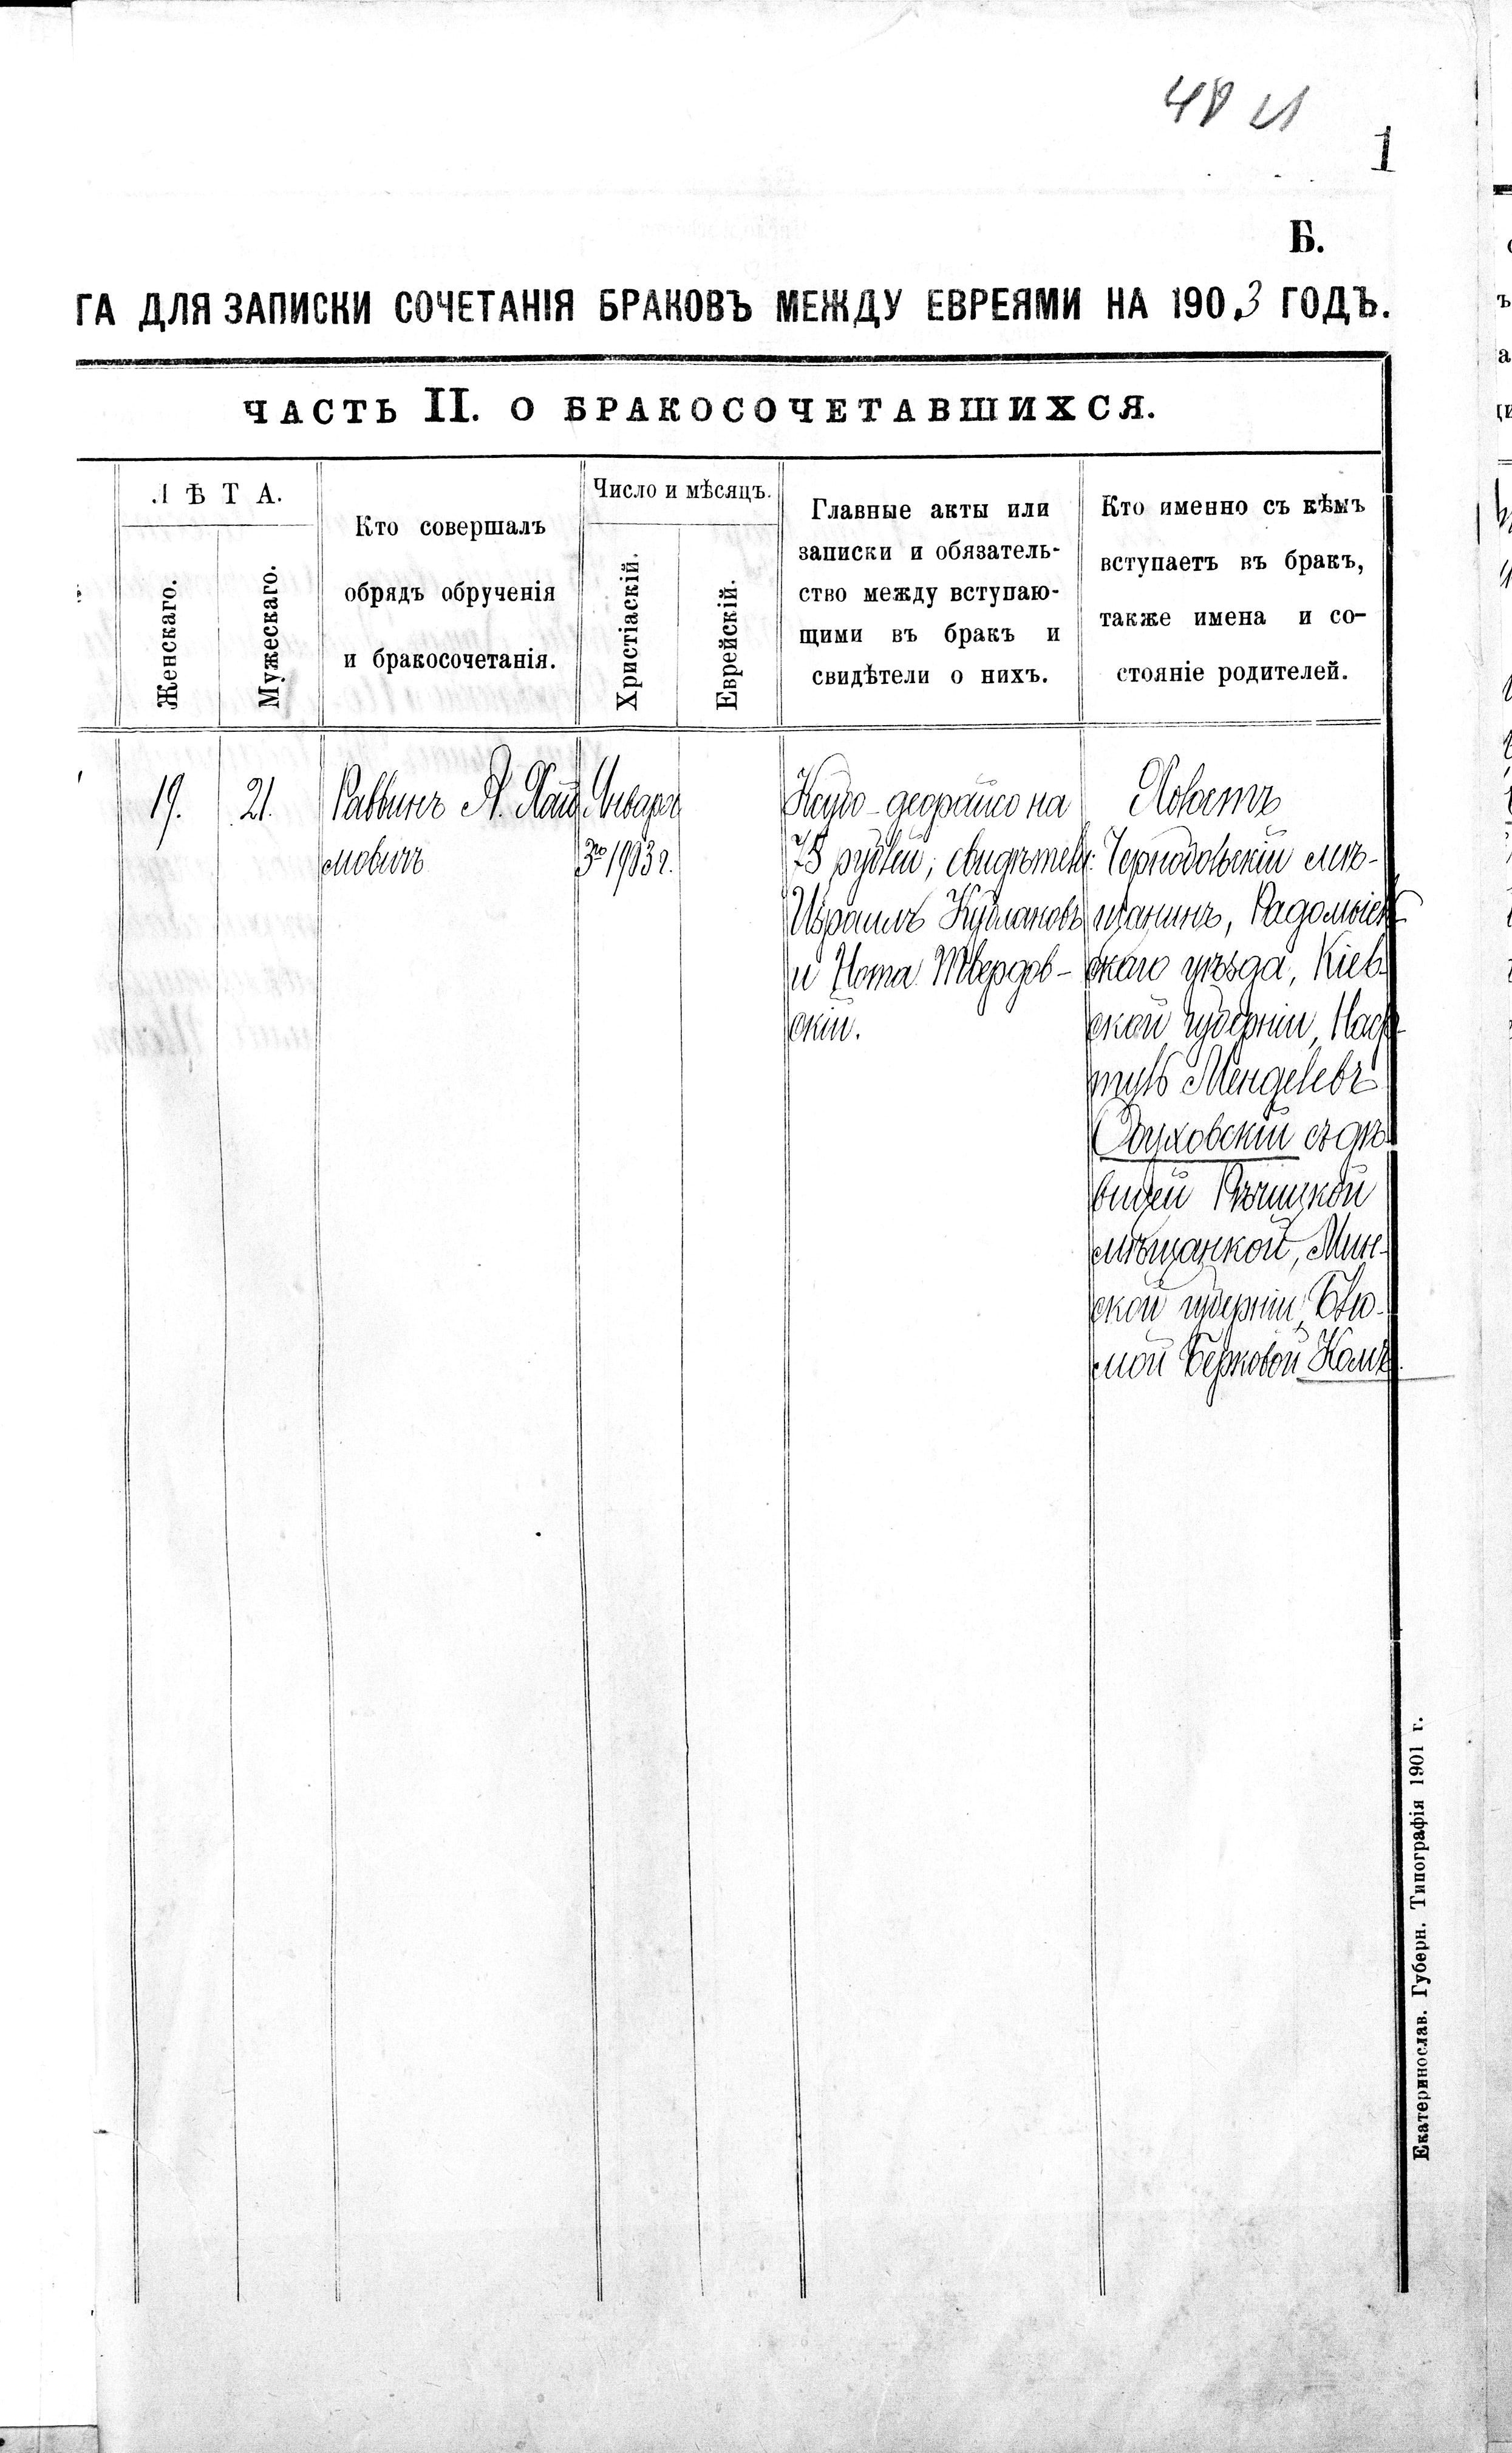 48
1
Б.
ГА ДЛЯ ЗАПИСКИ СОЧЕТАНІЯ БРАКОВЪ МЕЖДУ ЕВРЕЯМИ НА 1903 ГОДЪ.
ЧАСТЬ II. О БРАКОСОЧЕТАВШИХСЯ.
ЛѢТА.
Женскаго.
Мужескаго.
Кто совершалъ
обрядъ обрученія
и бракосочетанія.
Число и мѣсяцъ.
Христіаскій.
Еврейскій.
Главные акты или
записки и обязатель-
ство между вступаю-
щими въ бракъ и
свидѣтели о нихъ.
Кто именно съ кѣмъ
вступаетъ въ бракъ,
также имена и со-
стояніе родителей.
19.
21.
Раввинъ А. Хай
мовичъ
Января
3го 1903 г.
на
75 рублей, свидѣтели:
Израиль
и Нота Твердов-
скій.
Холостъ
мѣ-
щанинъ, Радомысль-
скаго уѣзда, Кіев-
ской губерніи,
Менделевъ
Обуховскій съ дѣ-
вицей Рѣчицкой
мѣщанкой, Мин-
ской губерніи, Блю-
мой Берковой
Екатеринослав. Губерн. Типографія 1901 г.